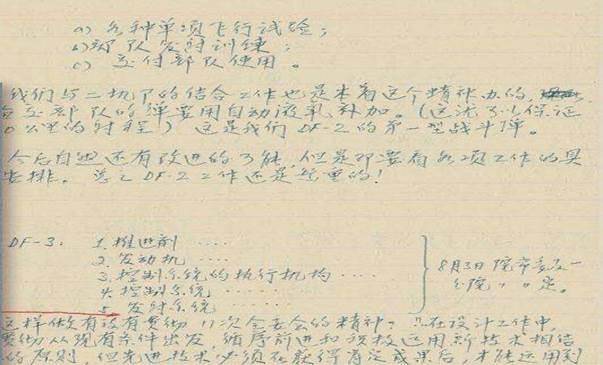 a) 各种单项飞行试验；
b) 部队发射训练；
c) 交付部队使用。
我们与二机部的结合工作也是本着这个精神办的，
交部队的弹要用自动液氧补加。(这说可以保证
0公里的射程) 这是我们 DF-2 的第一型战斗弹。
今后自然还有改进的可能，但是那要看各项工作的具
安排。总之DF-2工作还是繁重的！
DF-3：
1. 推进剂 ……
2. 发动机 ……
3. 控制系统的执行机构 ……
4. 控制系统 ……
5. 发射系统 ……
8月3日院常委及一
分院 定。
这样做有没有贯彻 11次全委会的精神？在设计工作中，
贯彻从现有条件出发，循序前进和积极运用新技术相结
的原则，但先进技术必须在获得肯定成果后，才能运用到